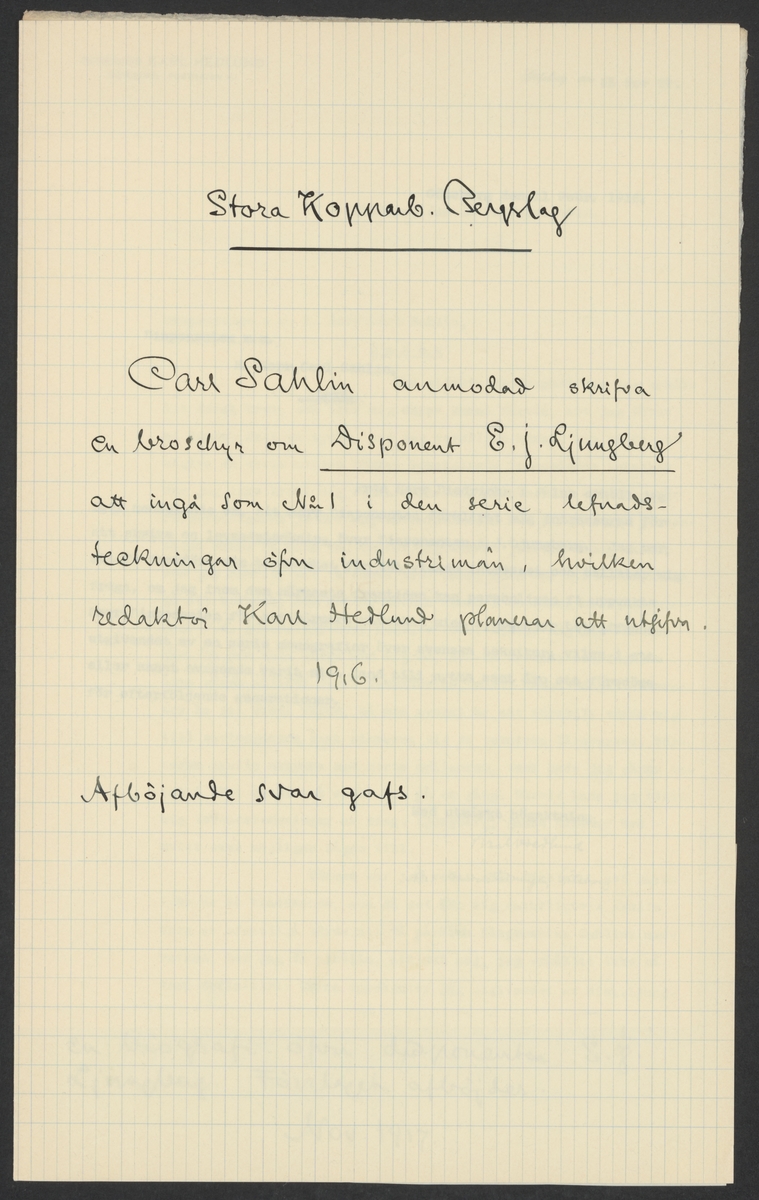 Stora Kopparb. Bergslag
Carl Sahlin anmodad skrifva
en broschyr om Disponent E. J. Ljungberg
att ingå som No 1 i den serie lefnads-
teckningar öfver industrimän, hvilken
redaktör Karl Hedlund planerar att utgifva.
1916.
Afböjande svar gafs.